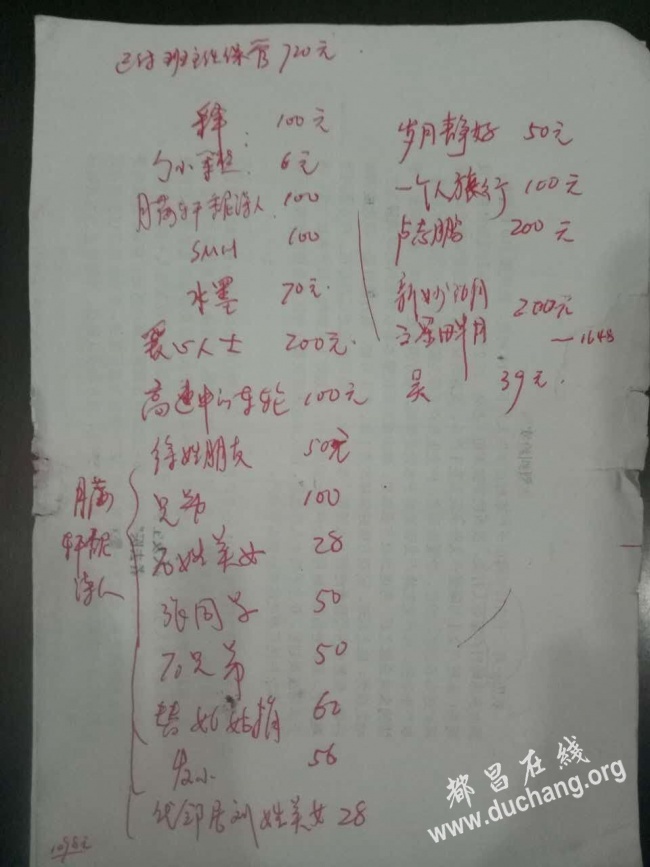 已付班主任保管720元
100元
勺小 6元
月满轩尼诗人 100
SMH 100
水墨 70元
爱心人士 200元
高速中的车轮 100元
徐姓朋友 50元
兄弟 100
石姓美女 28
张同学 50
70兄弟 50
替姑姑捐 62
发小 56
代邻居刘姓美女 28
月满
轩尼
诗人
岁月静好 50元
一个人旅行 100元
卢志鹏 200元
新妙
200元
半月
1648
吴 39元
都昌在线
www.duchang.org